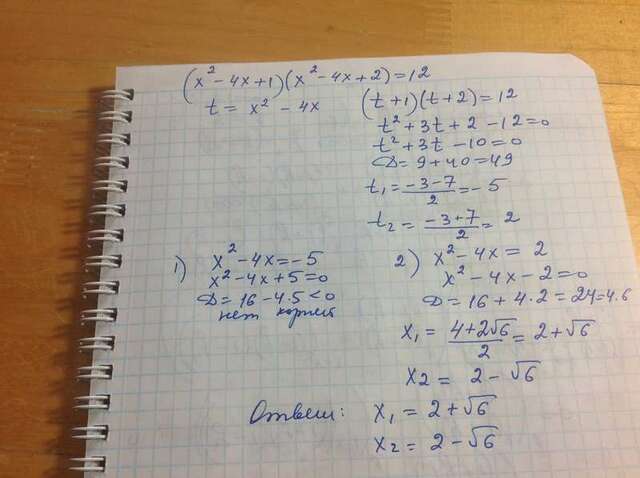 (x² - 4x + 1)(x² - 4x + 2) = 12
t = x² - 4x
(t + 1)(t + 2) = 12
t² + 3t + 2 - 12 = 0
t² + 3t - 10 = 0
D = 9 + 40 = 49
t₁ = (-3 - 7)/2 = -5
t₂ = (-3 + 7)/2 = 2
1) x² - 4x = -5
x² - 4x + 5 = 0
D = 16 - 4·5 < 0
нет корней
2) x² - 4x = 2
x² - 4x - 2 = 0
D = 16 + 4·2 = 24 = 4·6
x₁ = (4 + 2√6)/2 = 2 + √6
x₂ = 2 - √6
Ответ: x₁ = 2 + √6
x₂ = 2 - √6